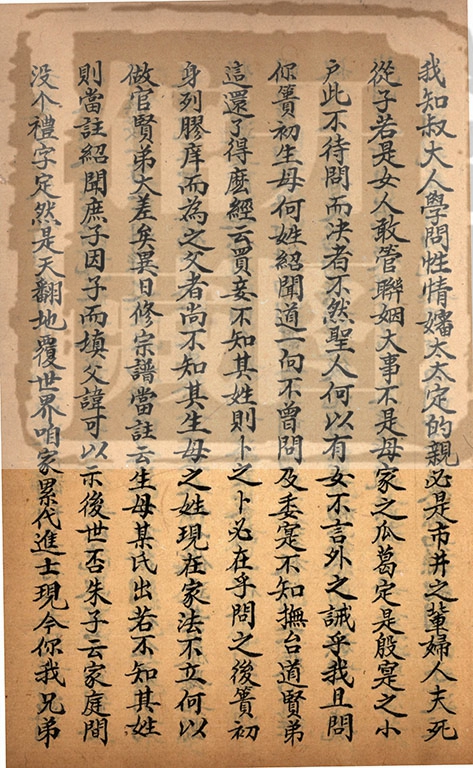 我知叔大人學問性情嬸太太定的親必是市井之輩婦人夫死
從子若是女人敢管聯姻大事不是母家之瓜葛定是殷寔之小
戶此不待問而决者不然聖人何以有女不言外之誡乎我且問
你簣初生母何姓紹聞道一向不曾問及委寔不知撫台道賢弟
這還了得麽經云買妾不知其姓則卜之卜必在乎問之後簣初
身列膠庠而為之父者尚不知其生母之姓現在家法不立何以
做官賢弟大差矣異日修宗譜當註云生母某氏出若不知其姓
則當註紹聞庶子因子而填父諱可以示後世否朱子云家庭間
没个禮字定然是天翻地覆世界咱家累代進士現今你我兄弟